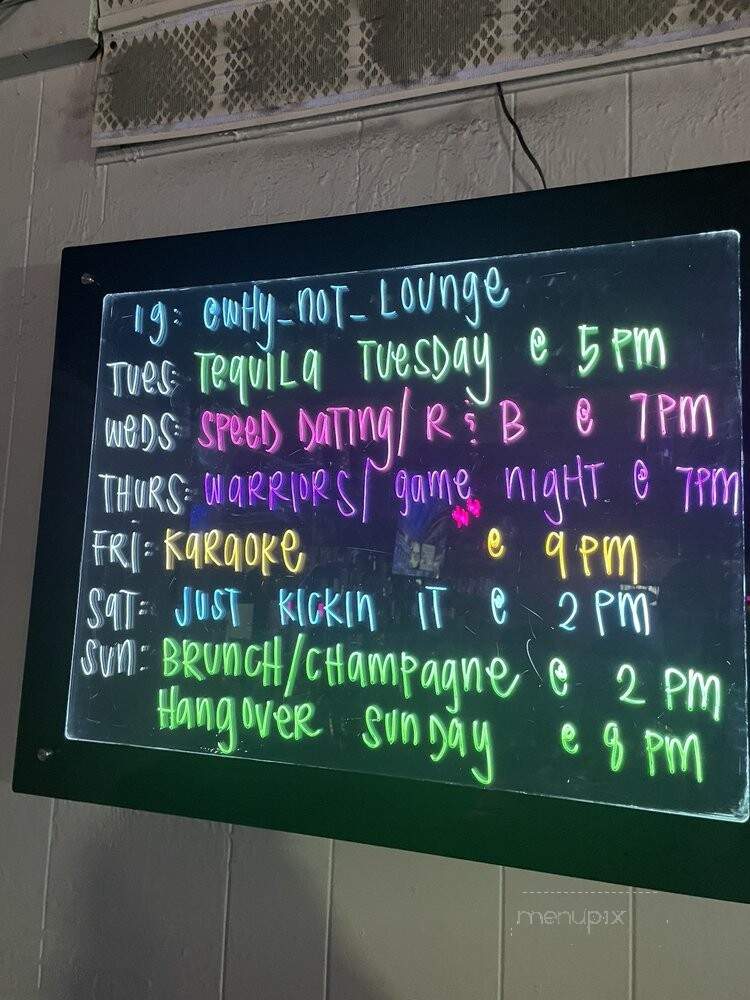 ig: @WHY_noT_Lounge
Tues: Tequila Tuesday @ 5 pm
Weds: Speed Dating/ R & B @ 7pm
Thurs: Warriors/ game night @ 7pm
Fri: Karaoke @ 9 pm
Sat: Just Kickin it @ 2 pm
Sun: Brunch/Champagne @ 2 pm
Hangover Sunday @ 8 pm
menupix